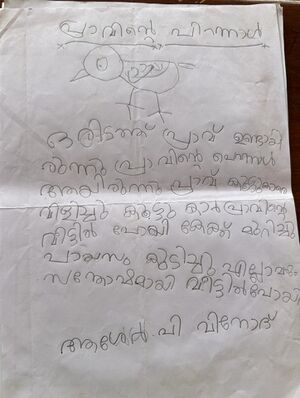 പ്രാവിന്റെ പിറന്നാൾ
ഒരിടത്ത് പ്രാവ് ഉണ്ടായി
രുന്നു പ്രാവിന്റെ പെറന്നാൾ
ആയിരുന്നു പ്രാവ് കൂട്ടുകാരെ
വിളിച്ചു കൂട്ടു കാർ പ്രാവിന്റെ
വീട്ടിൽ പോയി കേക്ക് മുറിച്ചു
പായസം കുടിച്ചു എല്ലാവരും
സന്തോഷമായി വീട്ടിൽ പോയി
പി വിനോദ്